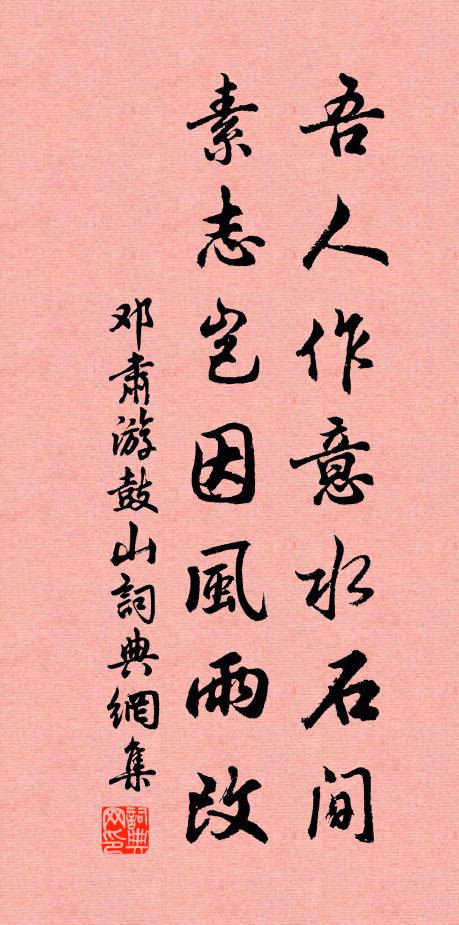 吾人作意水石间
素志岂因風雨改
邓肃游鼓山詞典網集
詞典网印